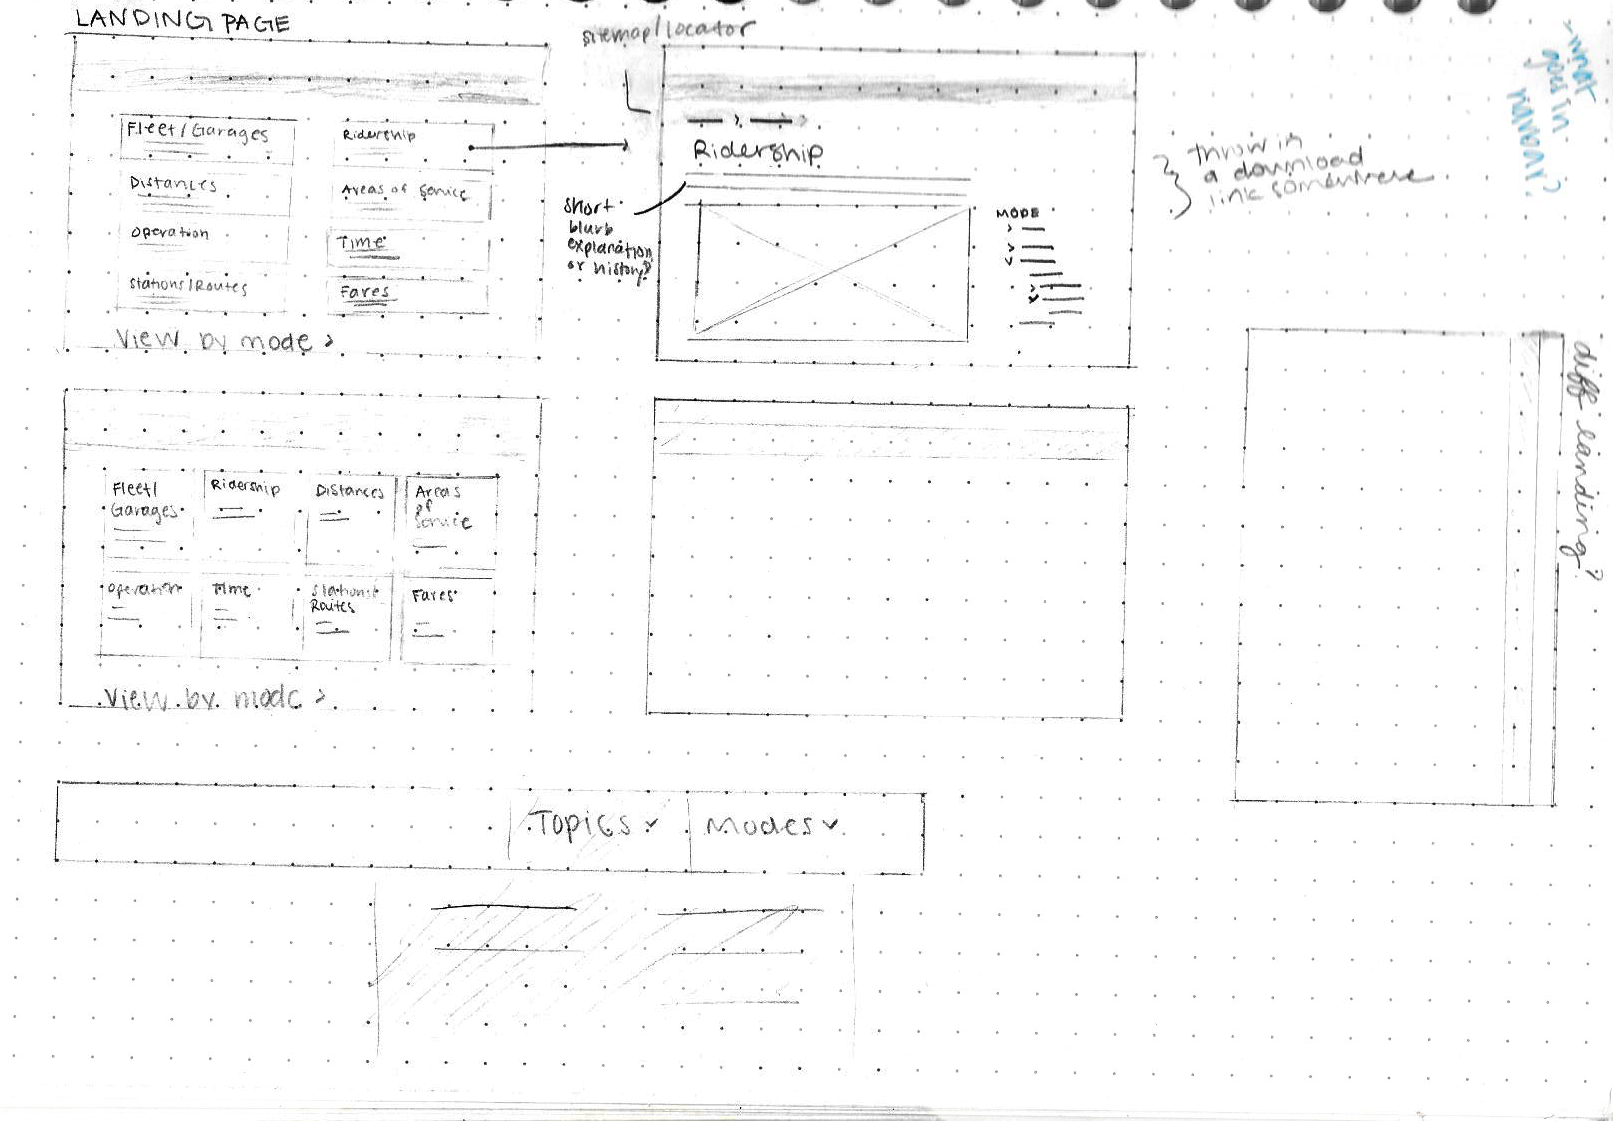 LANDING PAGE
Fleet/Garages
Ridership
Distances
Areas of Service
Operation
Time
Stations/Routes
Fares
View by mode >
sitemap/locator
Ridership
short
blurb
explanation
or history?
MODE
throw in
a download
link somewhere
-what
goes in
navbar?
Fleet/
Garages
Ridership
Distances
Areas
of
Service
Operation
Time
Stations+
Routes
Fares
View by mode >
diff landing?
Topics
Modes